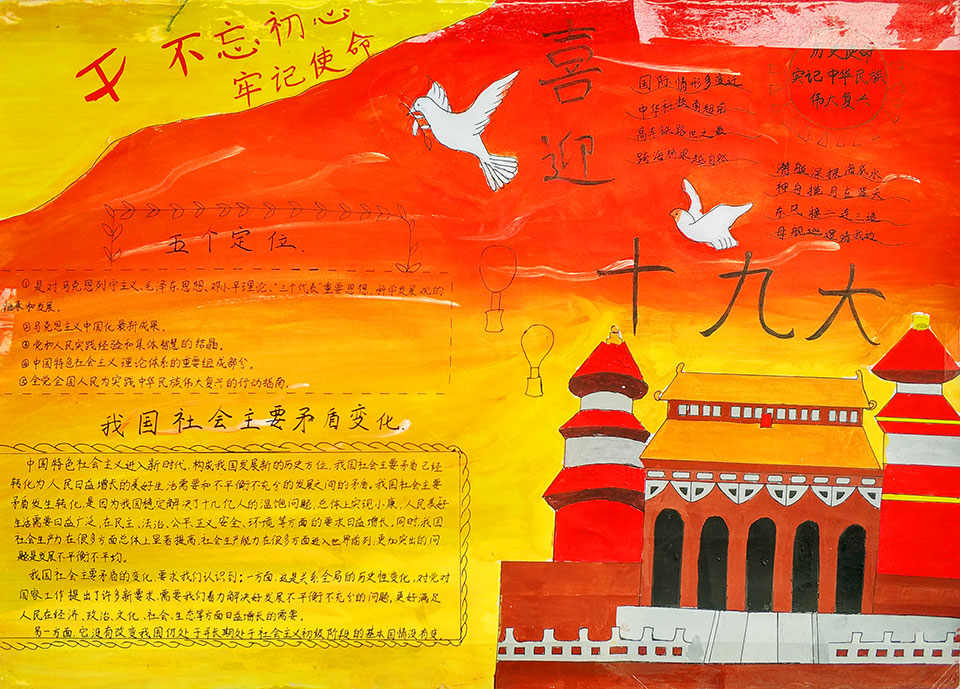 不忘初心
牢记使命
喜迎
十九大
国际情形多变迁
中华科技勇超前
高车铁路世之最
跨海桥梁越自然
历史使命
实记中华民族
伟大复兴
潜艇深探海底水
神舟揽月在蓝天
东风接二连三造
母舰巡逻我边
五个定位.
①是对马克思列宁主义、毛泽东思想、邓小平理论、“三个代表”重要思想、科学发展观的
继承和发展。
②马克思主义中国化最新成果。
③党和人民实践经验和集体智慧的结晶。
④中国特色社会主义理论体系的重要组成部分。
⑤全党全国人民为实践中华民族伟大复兴的行动指南。
我国社会主要矛盾变化.
中国特色社会主义进入新时代,构成我国发展新的历史方位,我国社会主要矛盾已经
转化为人民日益增长的美好生活需要和不平衡不充分的发展之间的矛盾。我国社会主要
矛盾发生转化,是因为我国稳定解决了十几亿人的温饱问题,总体上实现小康,人民美好
生活需要日益广泛,在民主、法治、公平、正义、安全、环境等方面的要求日益增长,同时我国
社会生产力在很多方面总体上显著提高,社会生产能力在很多方面进入世界前列,更加突出的问
题是发展不平衡不平均。
我国社会主要矛盾的变化,要求我们认识到:一方面,这是关系全局的历史性变化,对党对
国家工作提出了许多新要求,需要我们着力解决好发展不平衡不充分的问题,更好满足
人民在经济、政治、文化、社会、生态等方面日益增长的需要。
另一方面,它没有改变我国仍处于并长期处于社会主义初级阶段的基本国情没有变.